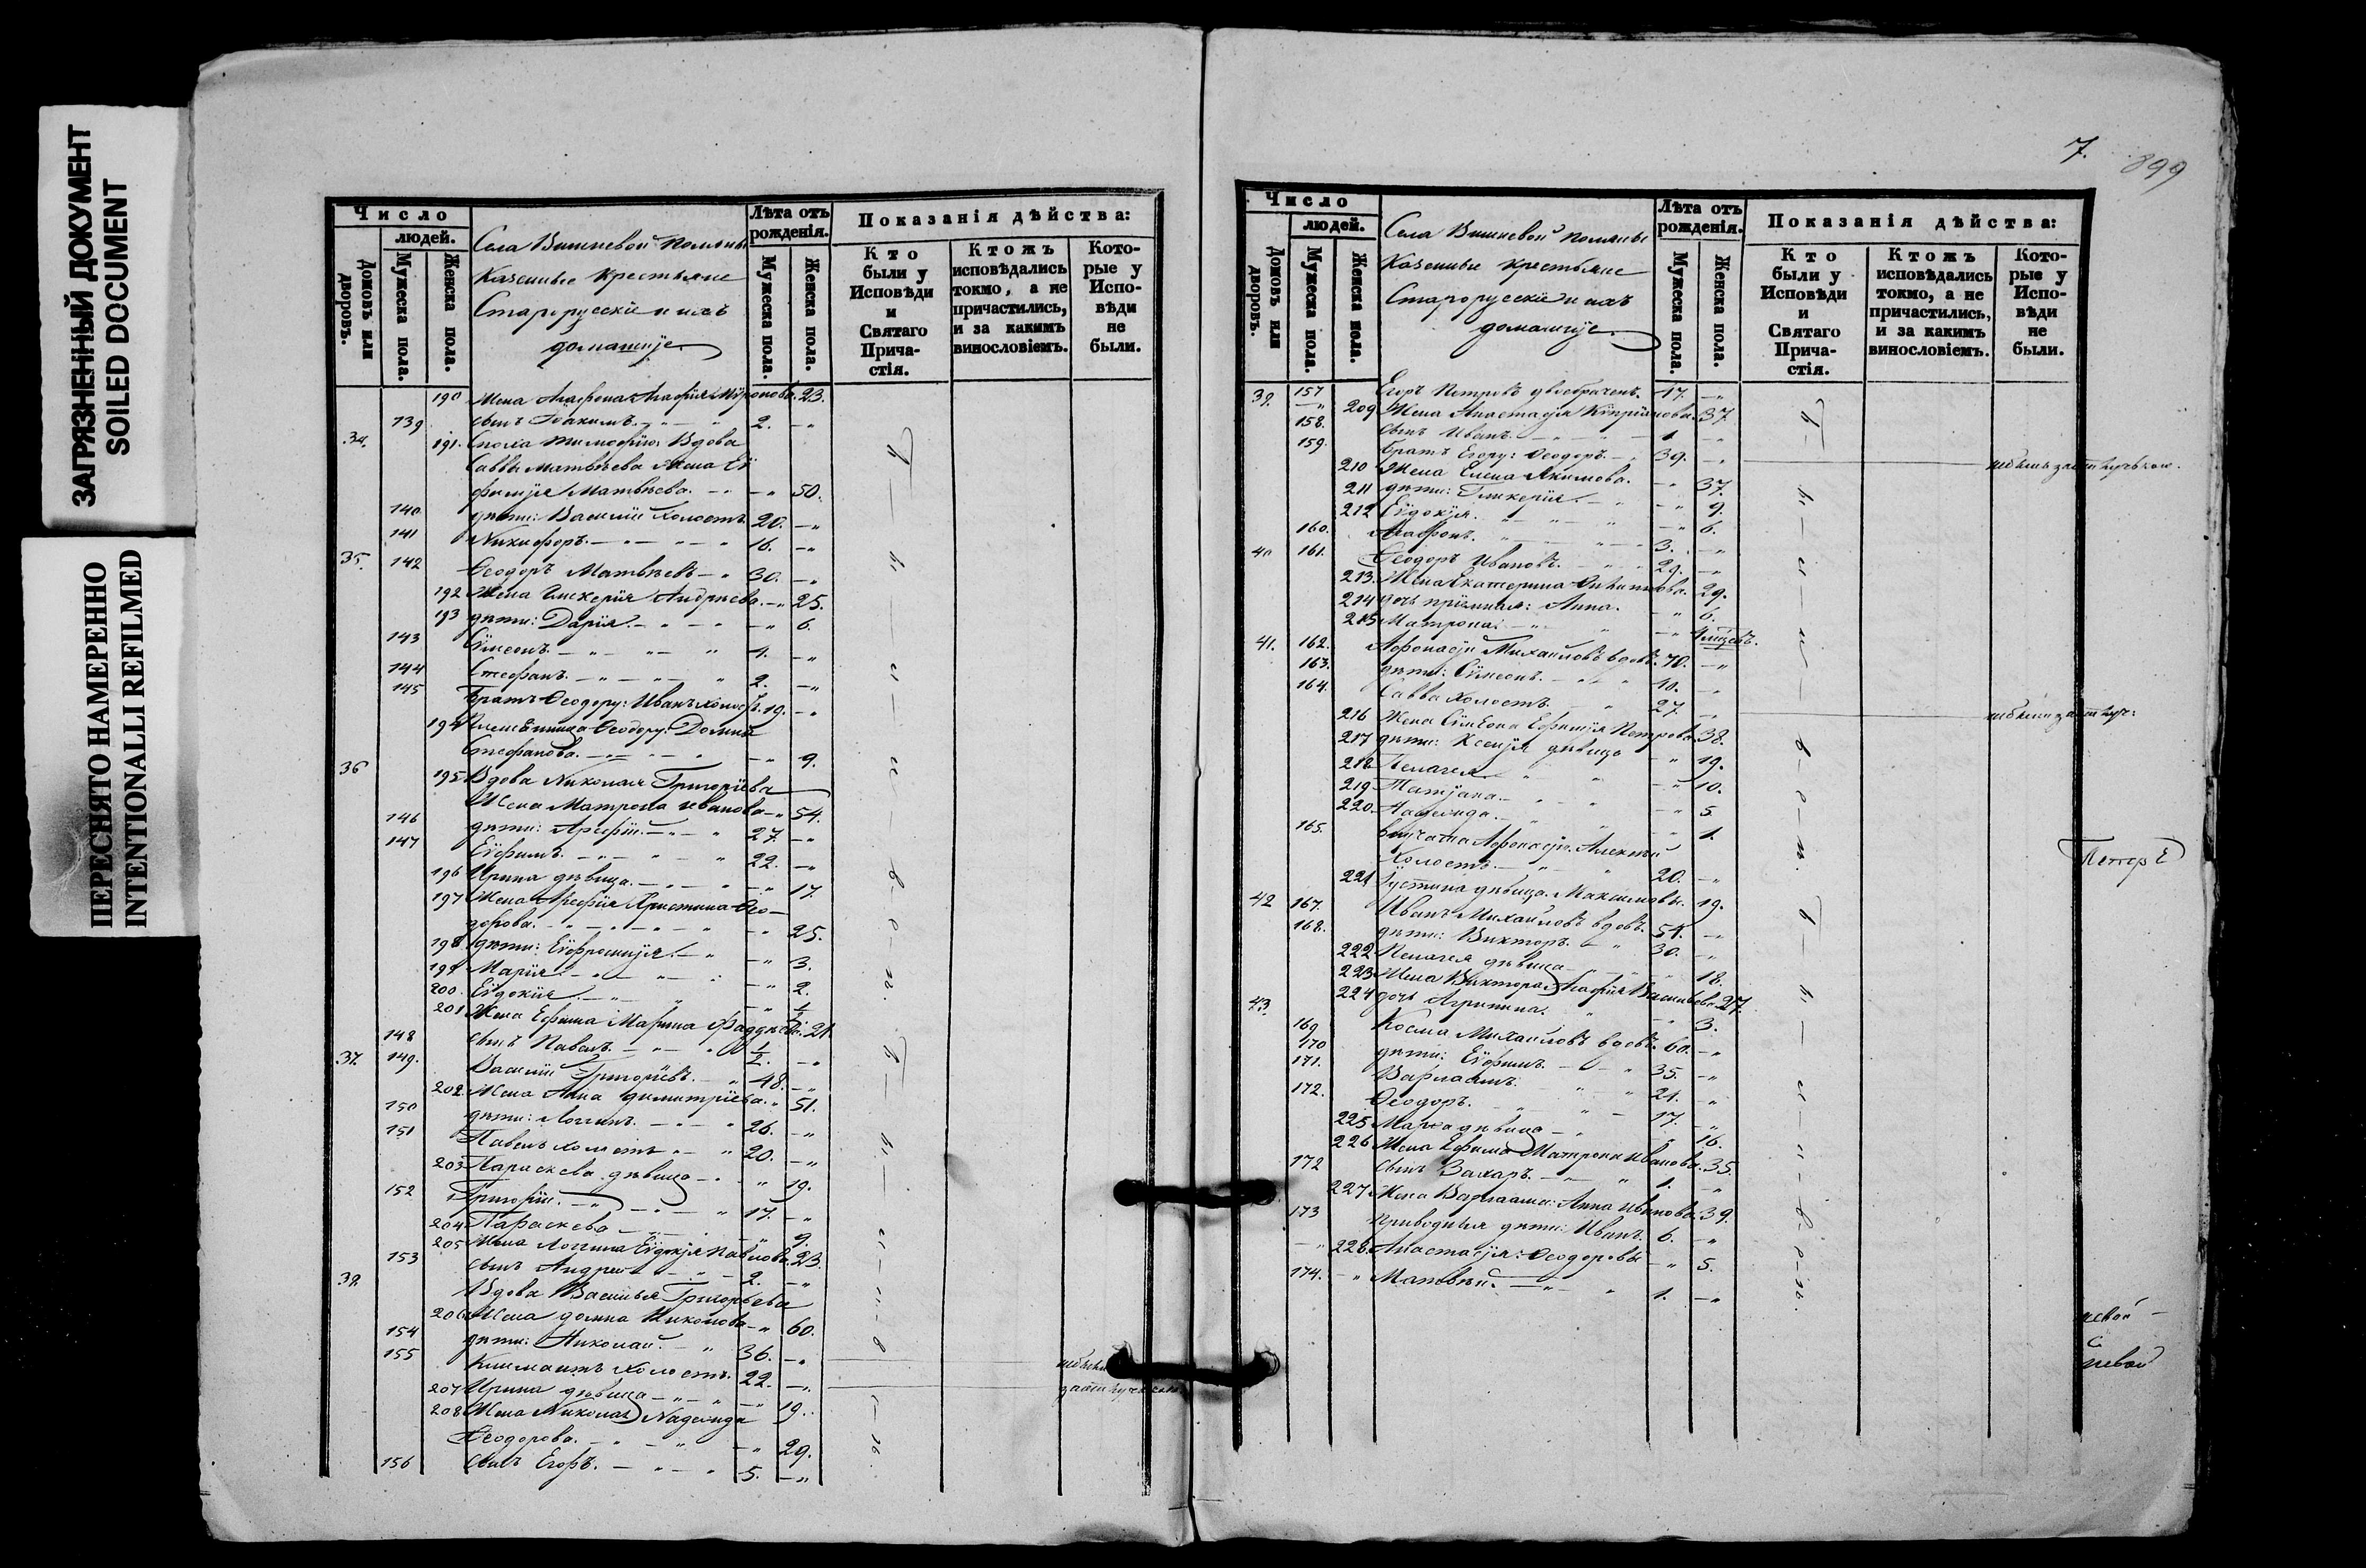 ЗАГРЯЗНЕННЫЙ ДОКУМЕНТ
SOILED DOCUMENT
ПЕРЕСНЯТО НАМЕРЕННО
INTENTIONALLI REFILMED
Число
людей.
Домовъ или дворовъ.
Мужеска пола.
Женска пола.
Села Вишневой Поляны
Казенные крестьяне
Старорусскіе и ихъ
домашніе
Лѣта отъ рожденія.
Мужеска пола.
Женска пола.
Показанія дѣйства:
Кто были у Исповѣди и Святаго Причастія.
Ктожъ исповѣдались токмо, а не причастились, и за какимъ винословіемъ.
Которые у Исповѣди не были.
190 Жена Агафона Агафія Миронова. 23.
139 сынъ Іоакимъ. 2.
34. 191. Сноха Тимофѣя Вдова
Савва Матвѣева жена Еѵ
фимія Матвѣева. 50.
140 дѣти: Василій холостъ 20.
141 Никифоръ. 16.
35. 142 Ѳеодоръ Матвѣевъ 30.
192 Жена Гликерія Андреева. 25.
193 дѣти: Дарія. 6.
143 Сѵмеонъ. 4.
144 Стефанъ. 2.
145 Братъ Ѳеодору: Иванъ холост. 19.
194 Племянница Ѳеодору: Домна
Стефанова. 9.
36 195 Вдова Николая Григоріева
Жена Матрона Иванова 54.
146 дѣти: Арефій. 27.
147 Еѵфимъ. 22.
196 Ирина дѣвица. 17.
197 Жена Арефія Христина Ѳео-
дорова. 25.
198 дѣти: Еѵфросинія. 3.
199 Марія. 2.
200. Еѵдокія. 1/2
201 Жена Ефима Марина Фаддѣева. 21.
148 сынъ Павелъ. 1/2.
37. 149. Василій Григоріевъ. 48.
202 Жена Анна Димитріева. 51.
150 дѣти: Логгинъ. 26.
151 Павелъ холостъ 20.
203 Параскева дѣвица 19.
152 Григорій. 17.
204 Параскева 9.
205 Жена Логгина Еѵдокія Павлова. 23.
153 сынъ Андрей 2.
38. Вдова Василья Григорьева
206 Жена Домна Никонова 60.
154 дѣти: Николай. 36.
155 Климентъ холостъ. 22.
207 Ирина дѣвица 19.
208 Жена Николая Надежда
Ѳеодорова. 29.
156 сынъ Егоръ. 5.
7.
899
Число
людей.
Домовъ или дворовъ.
Мужеска пола.
Женска пола.
Села Вишневой Поляны
Казенные крестьяне
Старорусскіе и ихъ
домашніе
Лѣта отъ рожденія.
Мужеска пола.
Женска пола.
Показанія дѣйства:
Кто были у Исповѣди и Святаго Причастія.
Ктожъ исповѣдались токмо, а не причастились, и за какимъ винословіемъ.
Которые у Исповѣди не были.
39. 157 Егоръ Петровъ двоебраченъ. 47.
209 Жена Анастасія Кипріянова. 37.
158. сынъ Иванъ. 1
159. Братъ Егору: Ѳеодоръ. 39.
210 Жена Елена Якимова. 37.
211 дѣти: Гликерія. 9.
212 Еѵдокія. 6.
160. Агафонъ. 3.
40 161. Ѳеодоръ Ивановъ. 29.
213. Жена Екатерина 29.
214 дочь пріемная: Анна. 6.
215 Матрона.
41. 162. Аѳонасій Михайловъ вдовъ. 70.
163. дѣти: Сѵмеонъ. 40.
164. Савва холостъ. 27.
216 Жена Сѵмеона Ефимія Петрова. 38.
217 дѣти: Ксенія дѣвица 19.
218 Пелагея 10.
219 Татіана. 5
220. Надежда. 1.
165. внучата Аѳонасію: Алексѣй
холостъ. 20.
221 Іустина дѣвица. Максимовы. 19.
42 167. Иванъ Михайловъ вдовъ. 54.
168. дѣти: Викторъ. 30.
222 Пелагея дѣвица 18.
223 Жена Виктора Агафія Васильева 27.
224 дочь Агрипина. 3.
43. 169 Косма Михайловъ вдовъ. 60.
170 дѣти: Еѵфимъ. 35.
171. Варлаамъ. 21.
172. Ѳеодоръ. 17.
225 Марѳа дѣвица 16.
226 Жена Ефима Матрона Иванова. 35.
172 сынъ Захаръ. 1.
227 Жена Варлаама: Анна Иванова. 39.
173 Приводныя дѣти: Иванъ. 6.
228 Анастасія: Ѳеодоровы 5.
174. Матвѣй. 1.
Петръ Е
невой